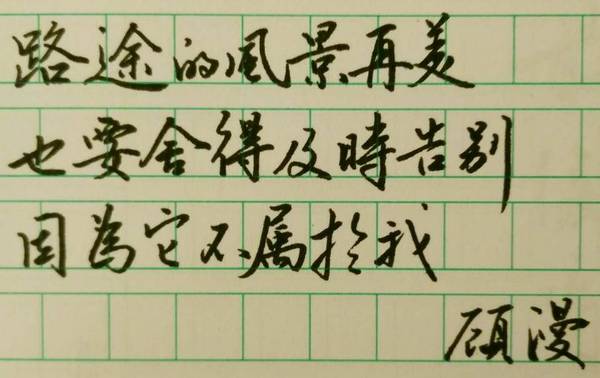 路途的風景再美
也要舍得及時告别
因為它不属於我
顾漫